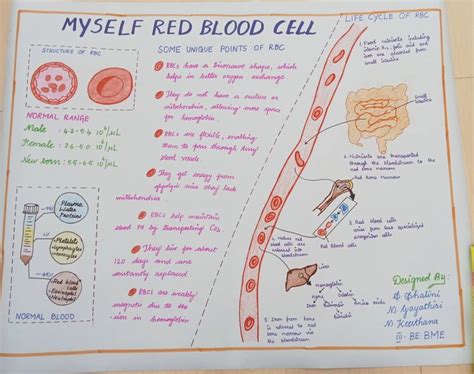 MYSELF RED BLOOD CELL
STRUCTURE OF RBC
NORMAL RANGE
Male : 4.3-5.4 10⁶/µL
Female : 3.6-5.0 10⁶/µL
New born : 5.5-6.5 10⁶/µL
Plasma
Water
Proteins
Platelets
Lymphocytes
Monocytes
Red blood
Cells
NORMAL BLOOD
SOME UNIQUE POINTS OF RBC
RBCs have a biconcave shape, which
helps in better oxygen exchange
They do not have a nucleus or
mitochondria, allowing more space
for hemoglobin
RBCs are flexible, enabling
them to pass through tiny
blood vessels
They get energy from
glycolysis since they lack
mitochondria
RBCs help maintain
blood PH by transporting Co₂
They live for about
120 days and are
constantly replaced
RBCs are weakly
magnetic due to the
iron in hemoglobin
LIFE CYCLE OF RBC
1. Food nutrients including
vitamin B12, folic acid and
iron are absorbed from
small intestine
Small
Intestine
2. Nutrients are transported
through the bloodstream to the
red bone marrow
Red bone marrow
3. Red blood cells
arise from less specialized
progenitor cells
Red Blood cells
4. Mature red
blood cells are
released into
bloodstream
Liver
Hemoglobin
Heme
Globin
Iron
Bilirubin
Amino acids
5. Iron from heme is
returned to red
bone marrow via
the bloodstream
Designed By:
Shalini
N. Gayathiri
N. Keerthana
III - BE BME